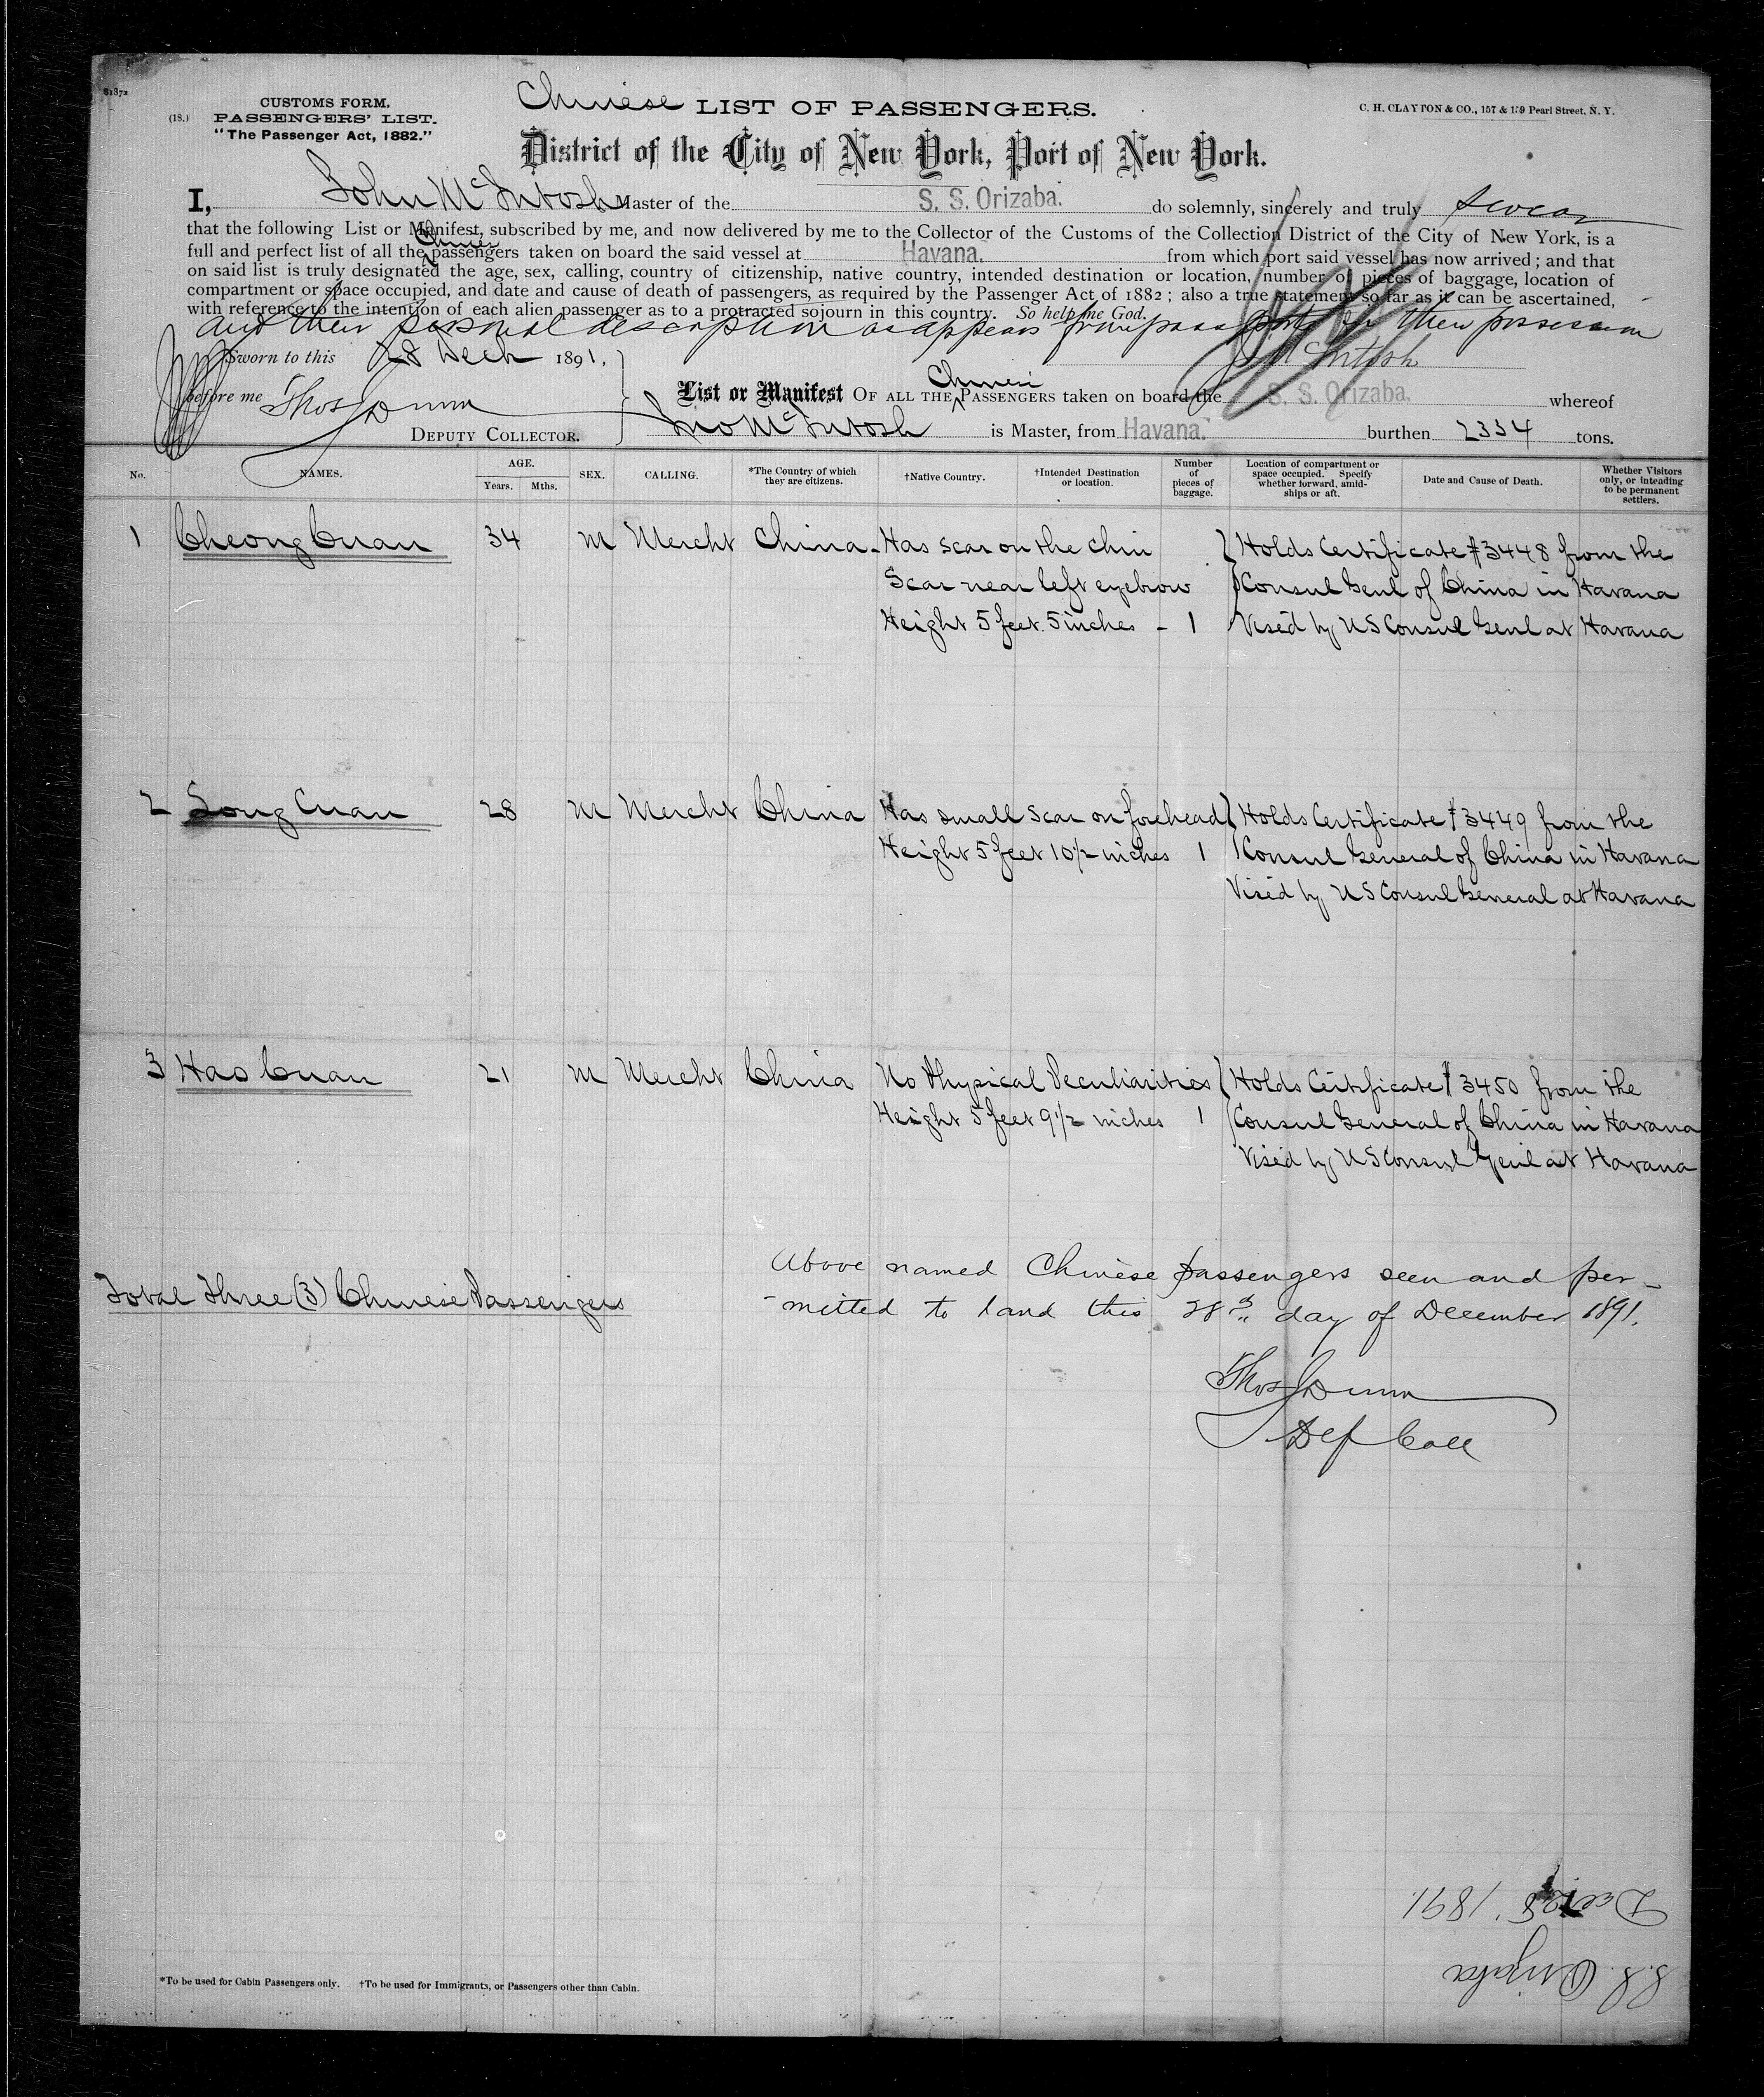 81872
CUSTOMS FORM.
(18.) PASSENGERS' LIST.
"The Passenger Act, 1882."
Chinese LIST OF PASSENGERS.
C. H. CLAYTON & CO., 157 & 159 Pearl Street, N. Y.
District of the City of New York, Port of New York.
I, John McIntosh Master of the S. S. Orizaba. do solemnly, sincerely and truly swear
that the following List or Manifest, subscribed by me, and now delivered by me to the Collector of the Customs of the Collection District of the City of New York, is a
full and perfect list of all the Chinese passengers taken on board the said vessel at Havana. from which port said vessel has now arrived; and that
on said list is truly designated the age, sex, calling, country of citizenship, native country, intended destination or location, number of pieces of baggage, location of
compartment or space occupied, and date and cause of death of passengers, as required by the Passenger Act of 1882; also a true statement so far as it can be ascertained,
with reference to the intention of each alien passenger as to a protracted sojourn in this country. So help me God.
and their personal description as appears from passports in their possession
Sworn to this 28 Dech 1891,
J McIntosh
before me Thos J Dunn
DEPUTY COLLECTOR.
List or Manifest OF ALL THE Chinese PASSENGERS taken on board the S. S. Orizaba. whereof
Jno McIntosh is Master, from Havana. burthen 2334 tons.
No. NAMES. AGE. Years. Mths. SEX. CALLING. *The Country of which they are citizens. †Native Country. †Intended Destination or location. Number of pieces of baggage. Location of compartment or space occupied. Specify whether forward, amidships or aft. Date and Cause of Death. Whether Visitors only, or intending to be permanent settlers.
1 Cheong Cuan 34 M Mercht China - Has scar on the chin Holds Certificate #3448 from the
Scar near left eyebrow Consul Genl of China in Havana
Height 5 feet. 5 inches - 1 Viséd by US Consul Genl at Havana
2 Long Cuan 28 M Mercht China Has small scar on forehead Holds Certificate # 3449 from the
Height 5 feet 10 1/2 inches 1 Consul General of China in Havana
Viséd by US Consul General at Havana
3 Hao Cuan 21 M Mercht China No Physical Peculiarities Holds Certificate # 3450 from the
Height 5 feet 9 1/2 inches 1 Consul General of China in Havana
Viséd by US Consul Genl at Havana
Total Three (3) Chinese Passengers
Above named Chinese passengers seen and per-
-mitted to land this 28th day of December 1891.
Thos J Dunn
Dep Coll
S.S. Orizaba
Dec 28, 1891
*To be used for Cabin Passengers only. †To be used for Immigrants, or Passengers other than Cabin.